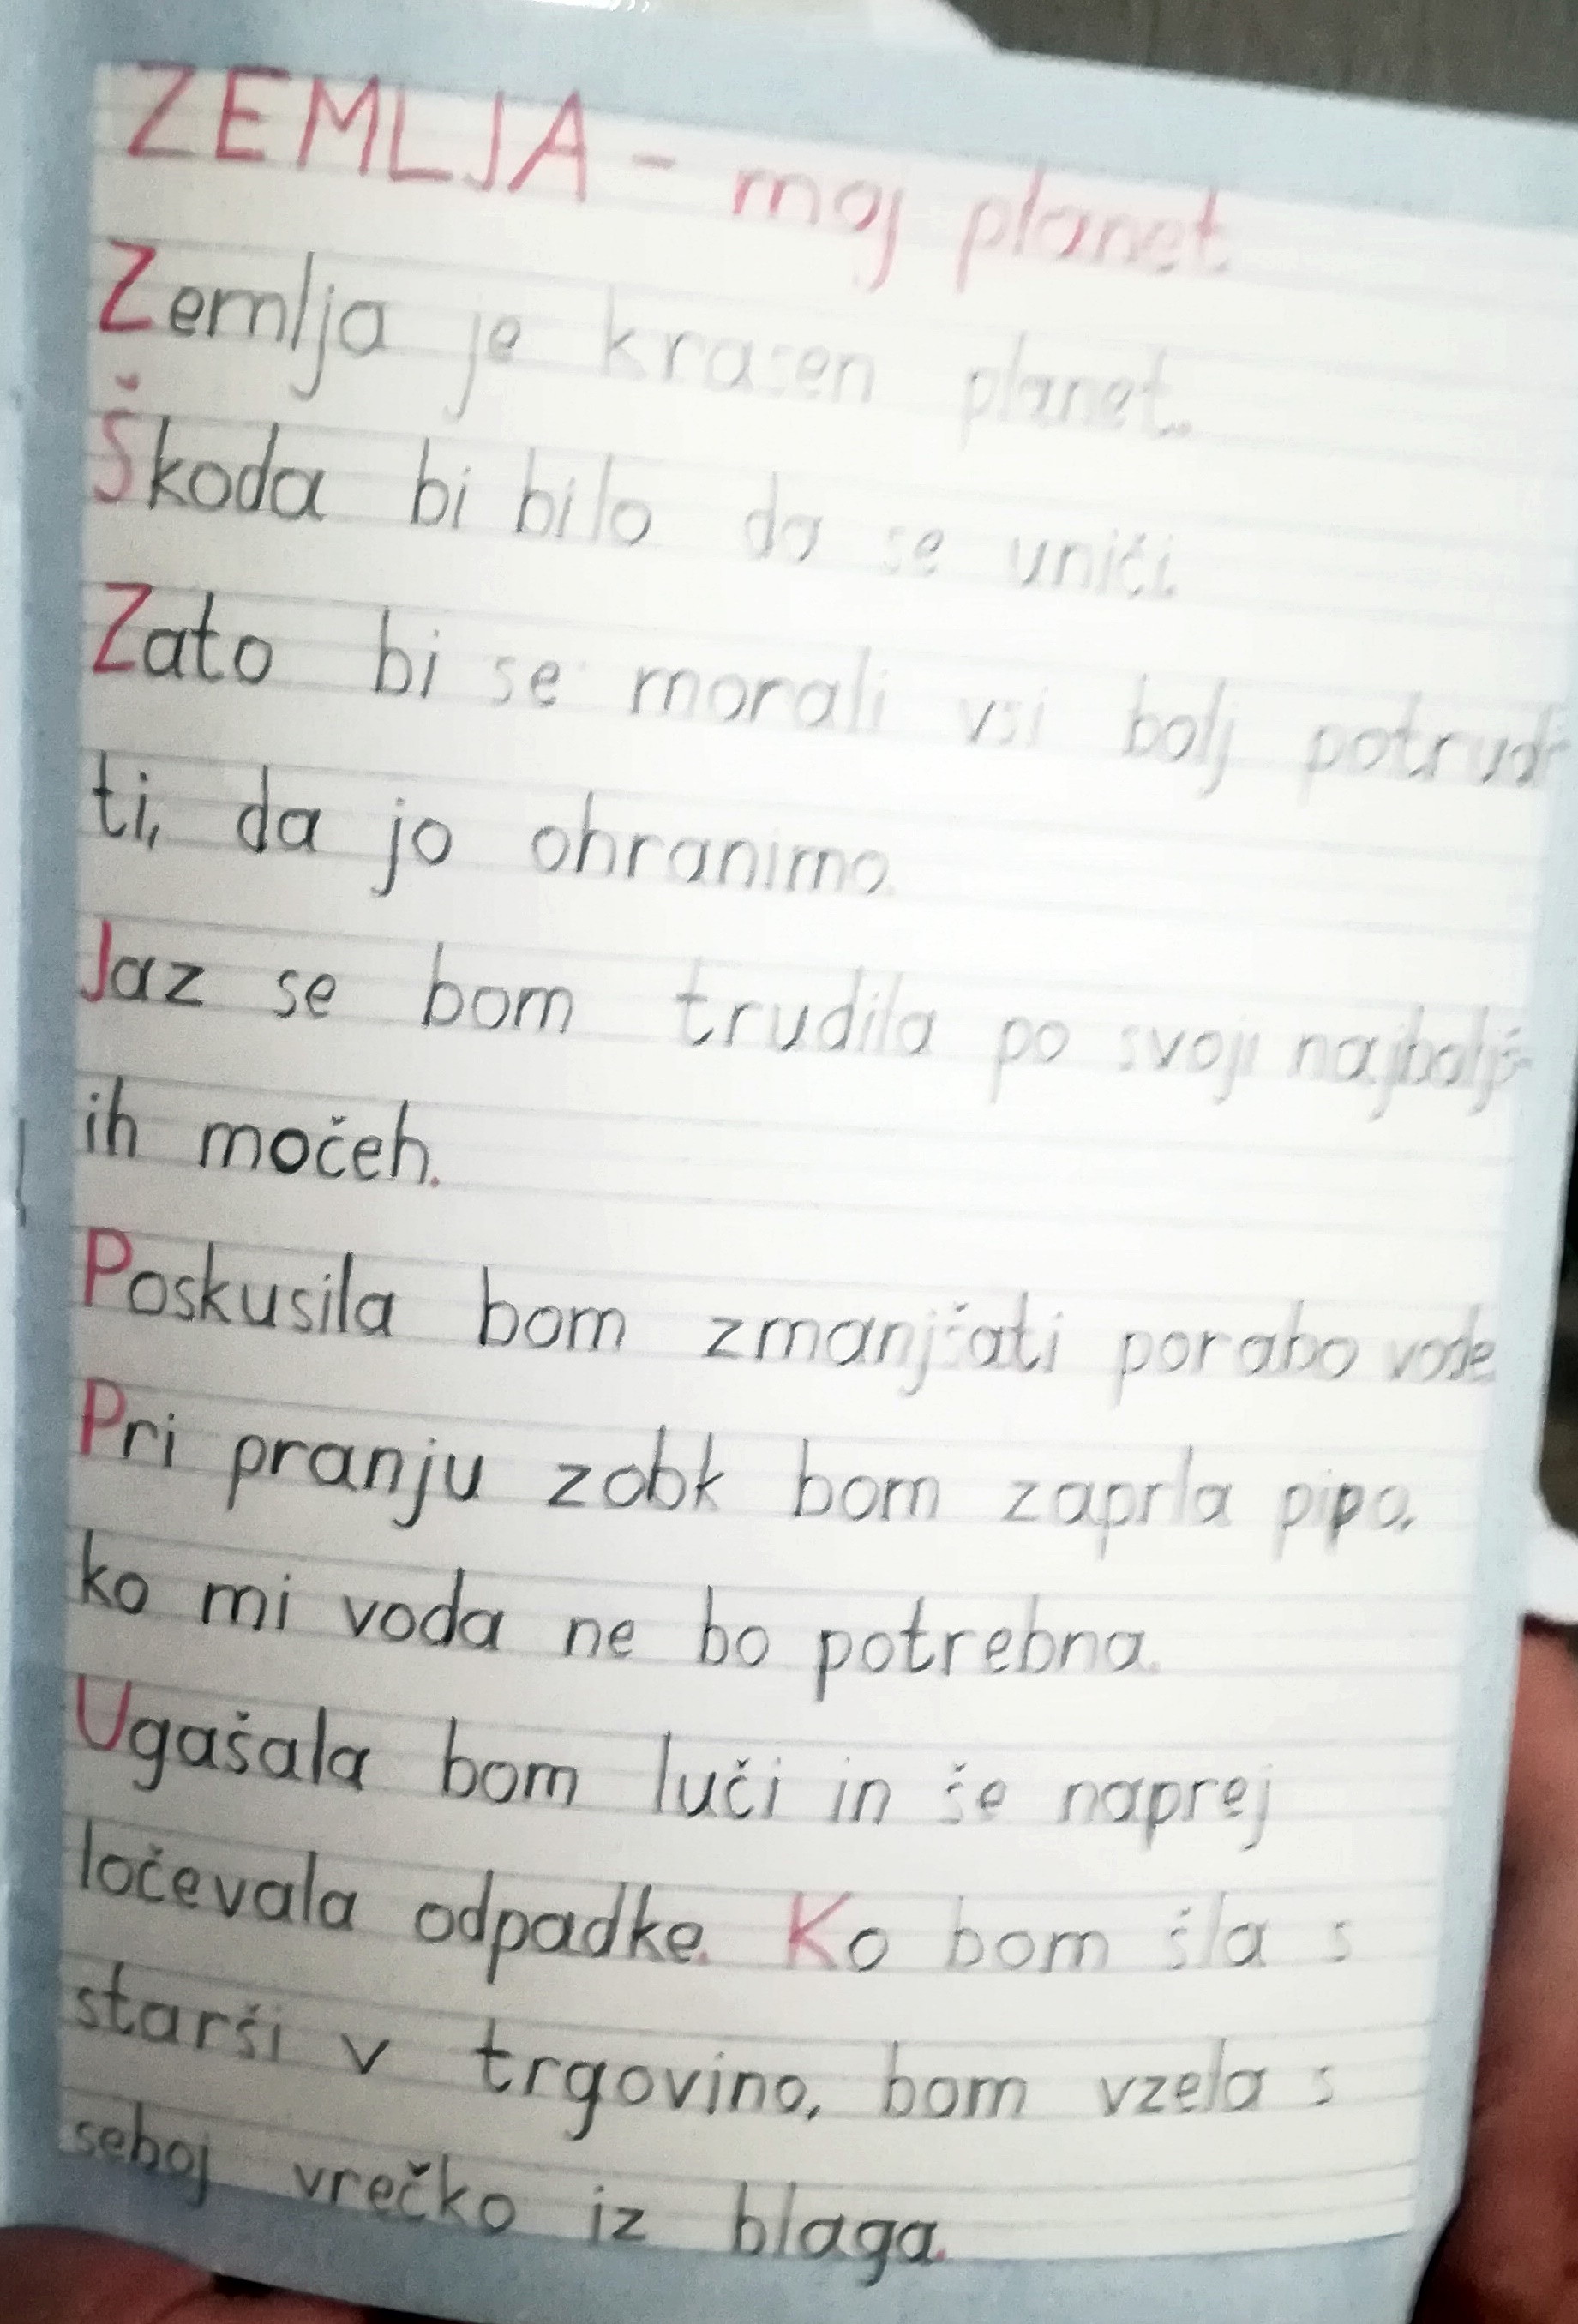 ZEMLJA - moj planet
Zemlja je krasen planet.
Škoda bi bilo da se uniči.
Zato bi se morali vsi bolj potrudi
ti, da jo ohranimo.
Jaz se bom trudila po svoji najboljš
ih močeh.
Poskusila bom zmanjšati porabo vode.
Pri pranju zobk bom zaprla pipo,
ko mi voda ne bo potrebna.
Ugašala bom luči in še naprej
ločevala odpadke. Ko bom šla s
starši v trgovino, bom vzela s
seboj vrečko iz blaga.